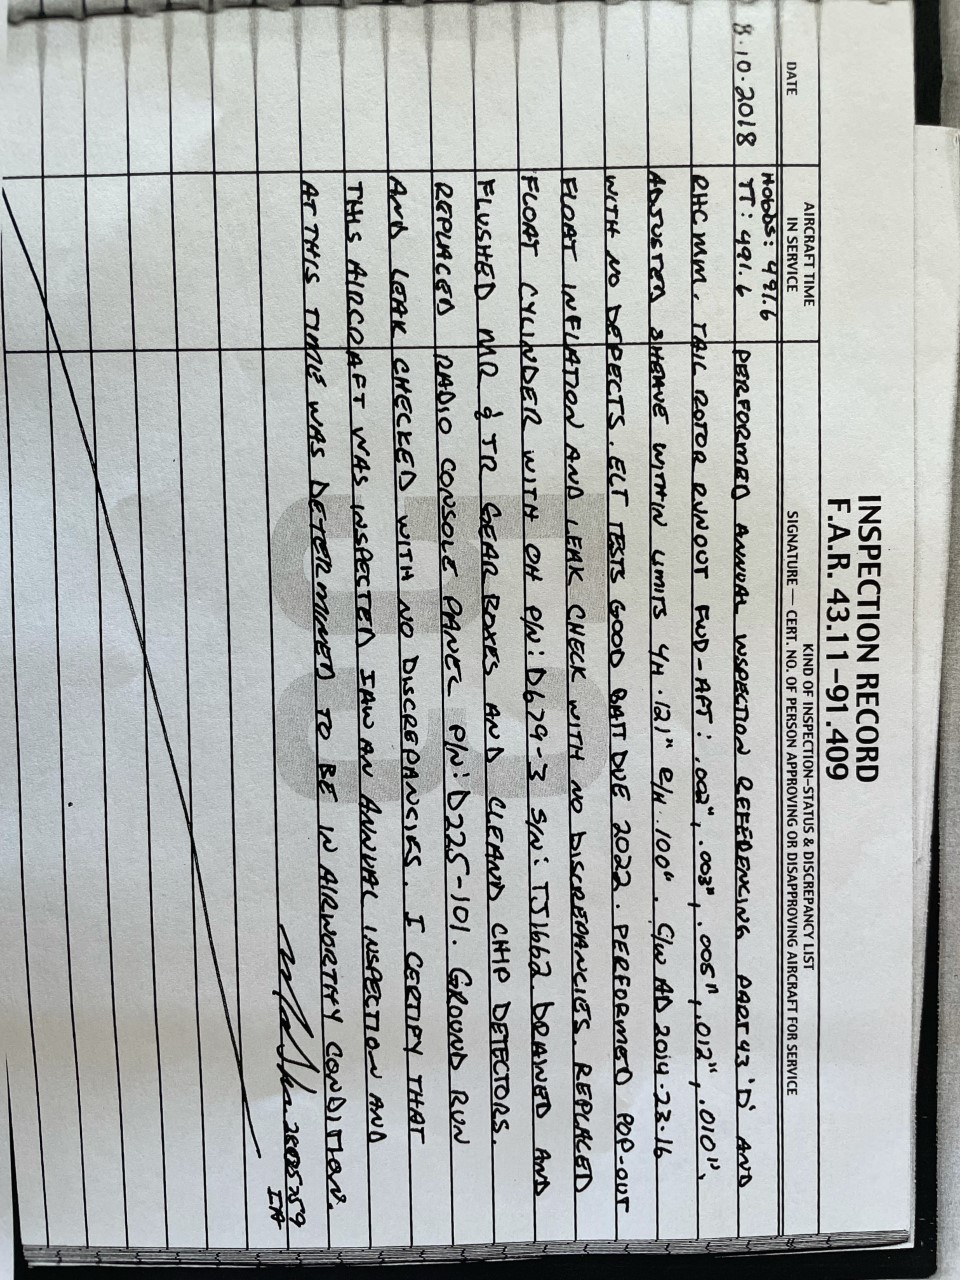 INSPECTION RECORD
F.A.R. 43.11–91.409
DATE
AIRCRAFT TIME
IN SERVICE
KIND OF INSPECTION–STATUS & DISCREPANCY LIST
SIGNATURE — CERT. NO. OF PERSON APPROVING OR DISAPPROVING AIRCRAFT FOR SERVICE
HOBBS: 491.6
8.10.2018 TT: 491.6 PERFORMED ANNUAL INSPECTION REFERENCING PART 43 'D' AND
RHC MM. TAIL ROTOR RUNOUT FWD-AFT: .002", .003", .005", .012", .010",
ADJUSTED SHEAVE WITHIN LIMITS Y/H .121" E/H .100". C/W AD 2014-23-16
WITH NO DEFECTS. ELT TESTS GOOD BATT DUE 2022. PERFORMED POP-OUT
FLOAT INFLATION AND LEAK CHECK WITH NO DISCREPANCIES. REPLACED
FLOAT CYLINDER WITH OH P/N: D679-3 S/N: TJ1662 DRAINED AND
FLUSHED MR & TR GEAR BOXES AND CLEAND CHIP DETECTORS.
REPLACED RADIO CONSOLE PANEL P/N: D225-101. GROUND RUN
AND LEAK CHECKED WITH NO DISCREPANCIES. I CERTIFY THAT
THIS AIRCRAFT WAS INSPECTED IAW AN ANNUAL INSPECTION AND
AT THIS TIME WAS DETERMINED TO BE IN AIRWORTHY CONDITION.
IA